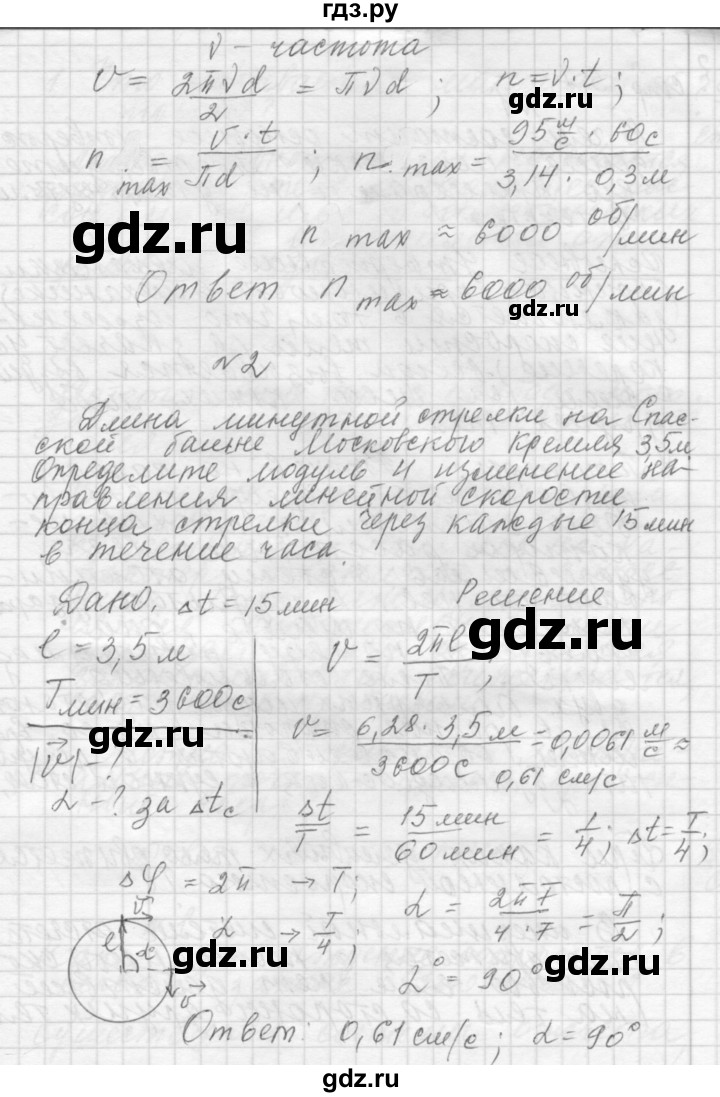 гдз.ру
ν - частота
v = 2πνd/2 = πνd; n = ν·t;
n max = v·t/πd; n max = 95 м/с · 60с / 3,14 · 0,3м
gdz.ru gdz.ru
n max ≈ 6000 об/мин
Ответ n max ≈ 6000 об/мин
gdz.ru
№2
Длина минутной стрелки на Спас-
ской башне Московского Кремля 3,5м
Определите модуль и изменение на-
правления линейной скорости
конца стрелки через каждые 15 мин
в течение часа.
Дано. Δt = 15 мин Решение
gdz.ru gdz.ru
l = 3,5 м v = 2πl/T;
Tмин = 3600с v = 6,28 · 3,5 м / 3600с = 0,0061 м/с ≈
gdz.ru
|v⃗| - ? 0,61 см/с
α - ? за Δt с Δt/T = 15 мин/60 мин = 1/4; Δt = T/4;
Δφ = 2π → T; α = 2πT/4·T = π/2;
v⃗ α → T/4;
l α
gdz.ru gdz.ru
α° = 90°
v⃗
Ответ: 0,61 см/с; α = 90°
gdz.ru